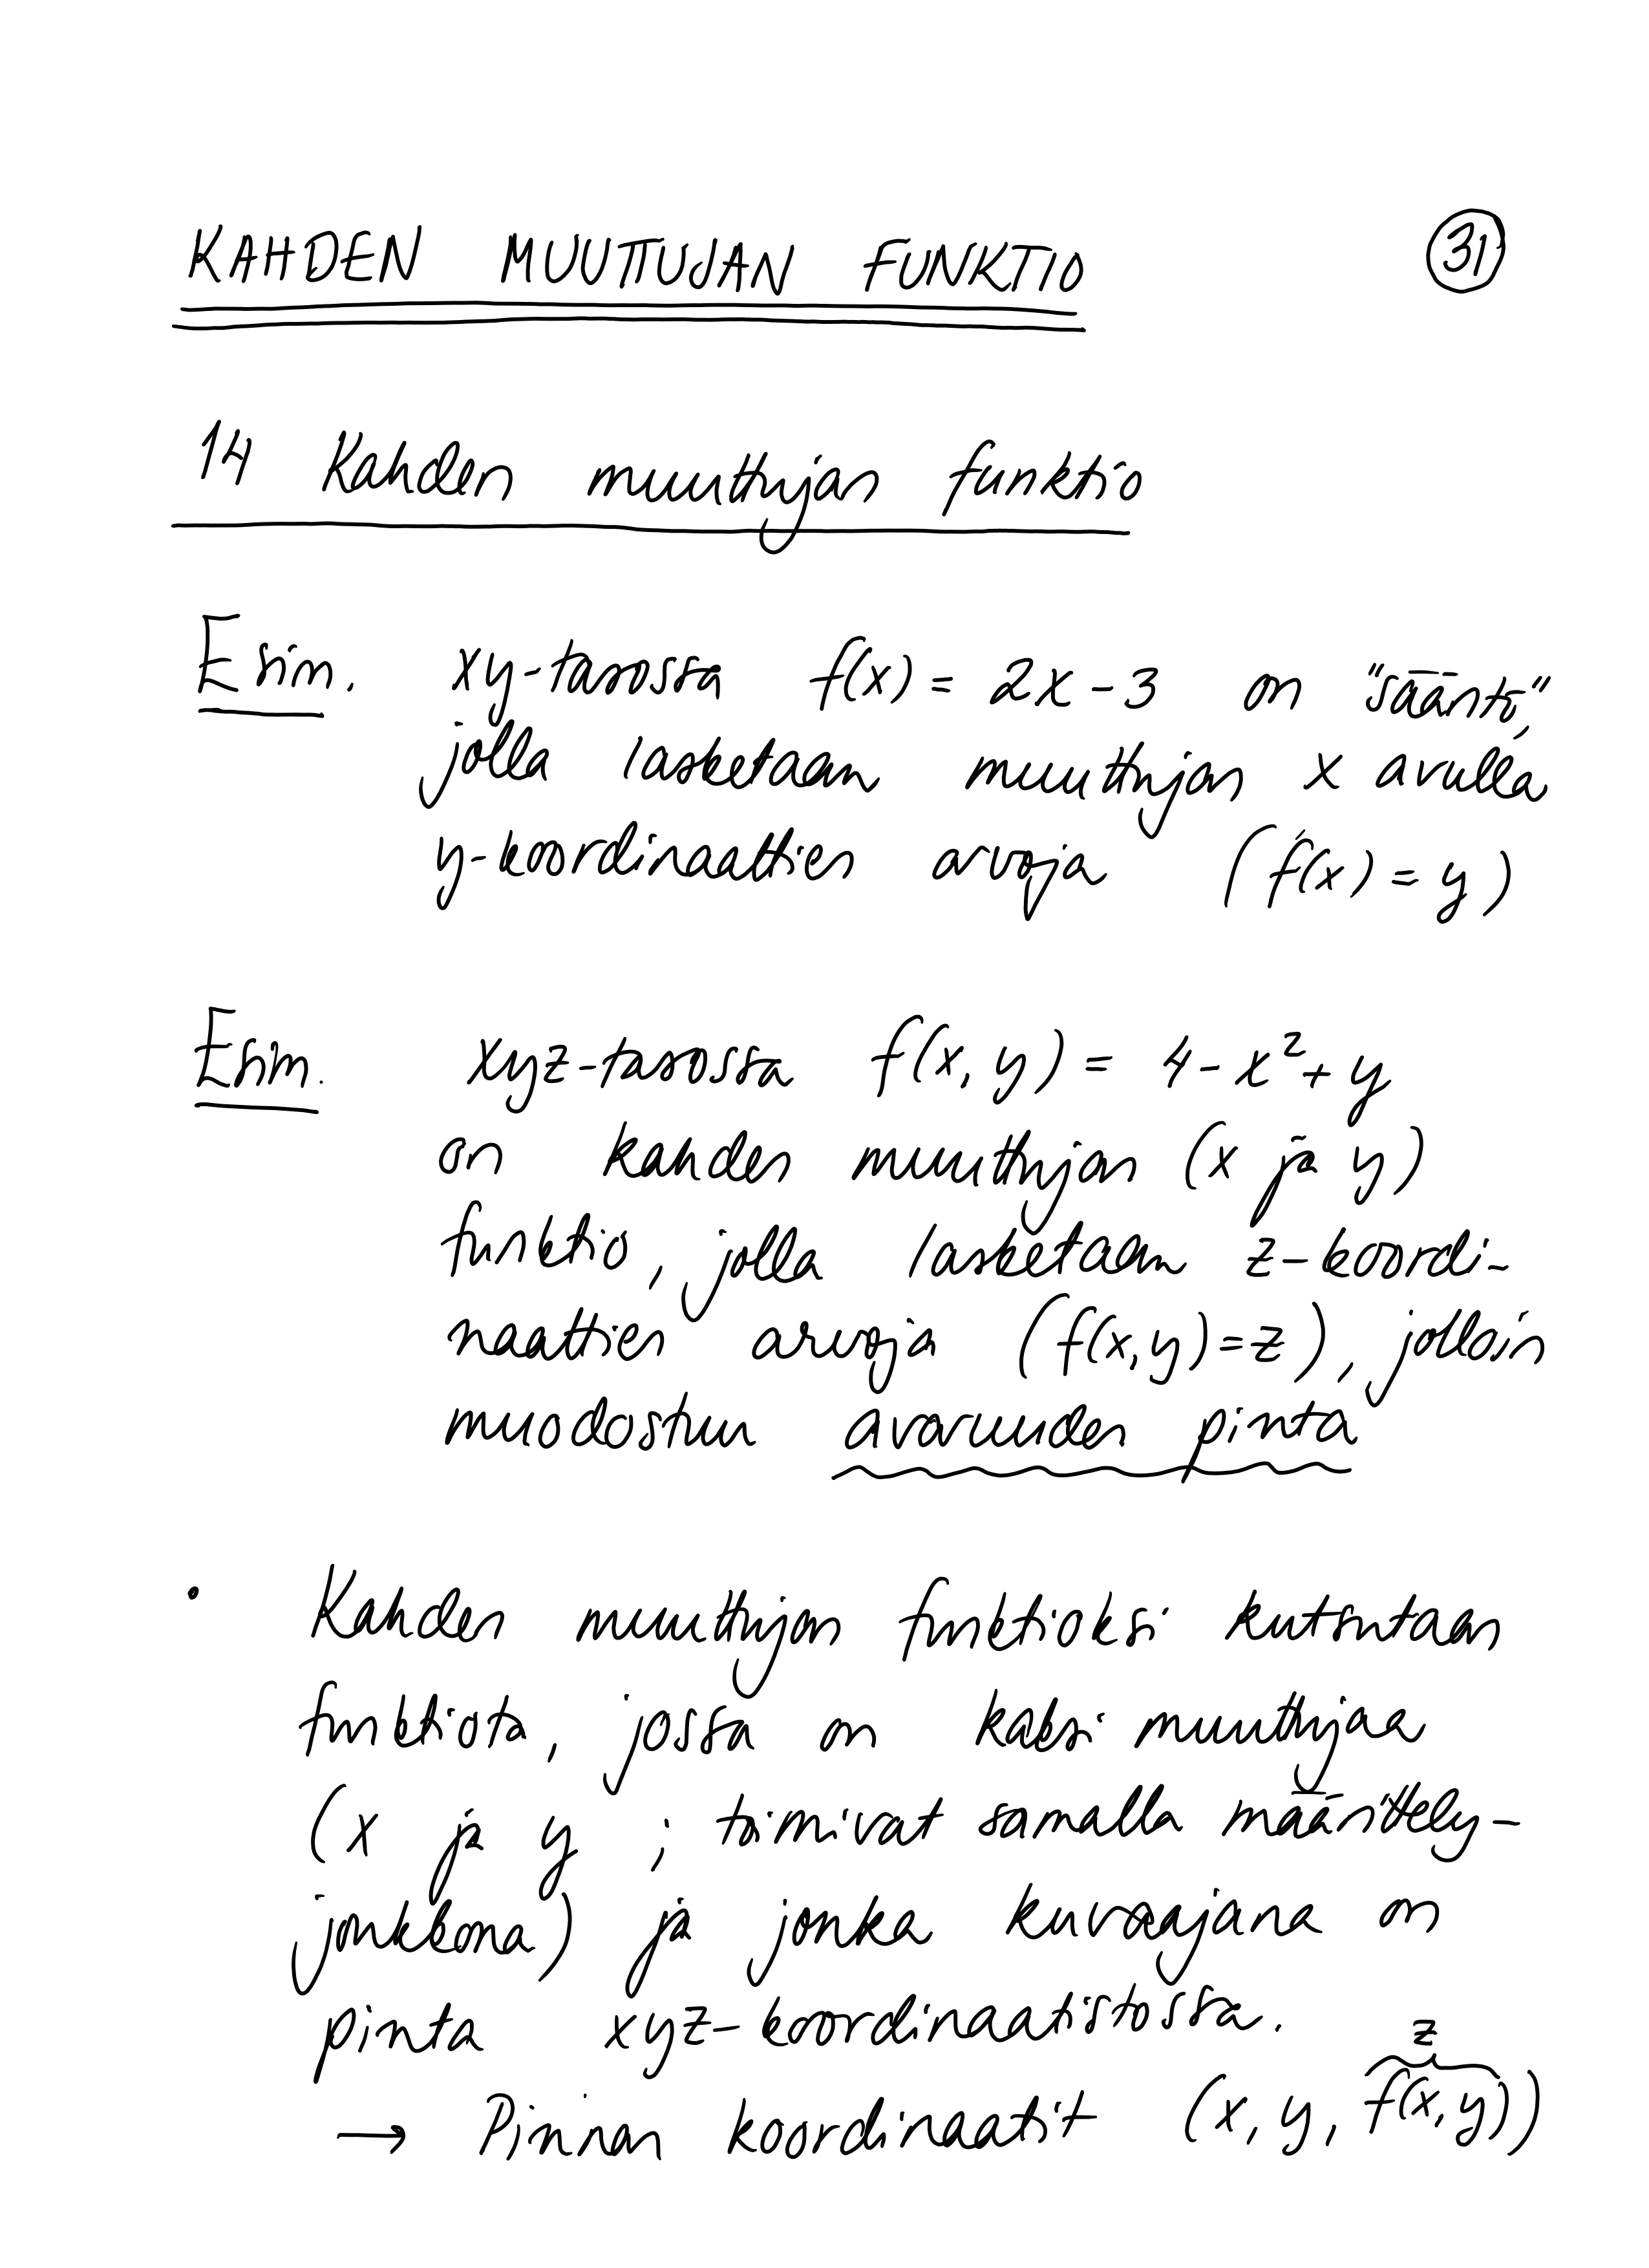 KAHDEN MUUTTUJAN FUNKTIO
31
14 Kahden muuttujan funktio
Esim. xy-tasossa f(x) = 2x - 3 on "sääntö",
jolla lasketaan muuttujan x avulla
y-koordinaattien arvoja (f(x) = y)
Esim. xyz-tasossa f(x, y) = 4 - x² + y
on kahden muuttujan (x ja y)
funktio, jolla lasketaan z-koordi-
naattien arvoja (f(x,y)=z), jolloin
muodostuu avaruuden pinta
• Kahden muuttujan funktioksi kutsutaan
funktiota, jossa on kaksi muuttujaa
(x ja y ; toimivat samalla määrittely-
joukkona) ja jonka kuvaajana on
pinta xyz-koordinaatistossa.
z
→ Pinnan koordinaatit (x, y, f(x,y))